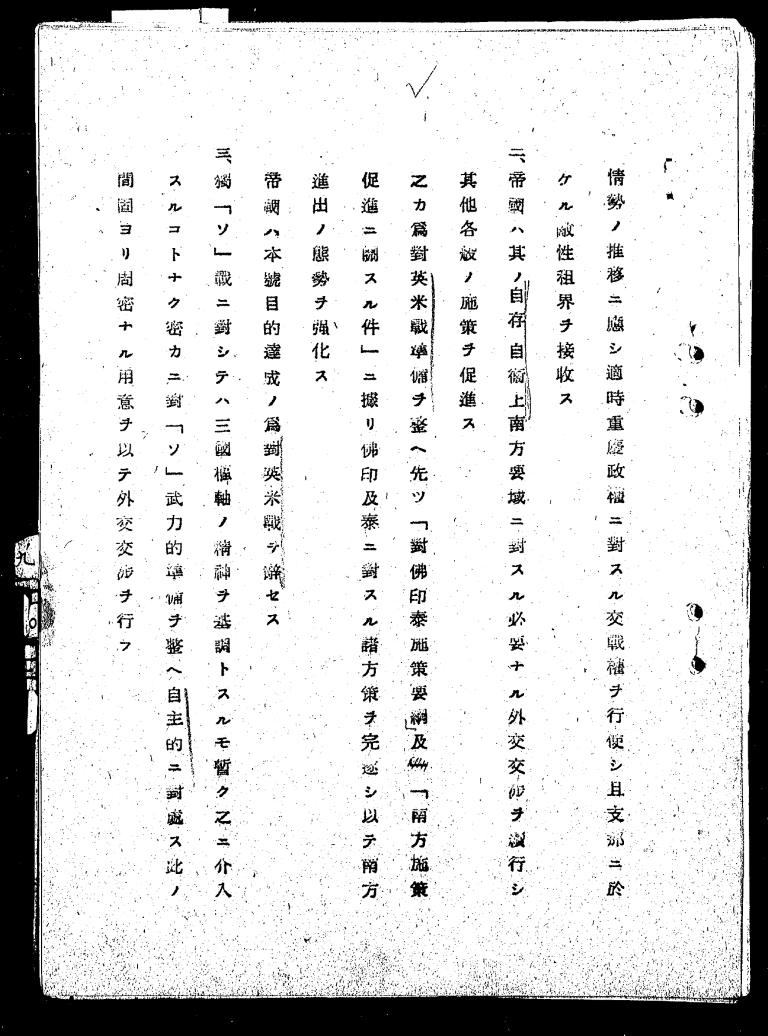 情勢ノ推移ニ應シ適時重慶政權ニ對スル交戰權ヲ行使シ且支那ニ於
ケル敵性租界ヲ接收ス
二、帝國ハ其ノ自存自衞上南方要域ニ對スル必要ナル外交交渉ヲ續行シ
其他各般ノ施策ヲ促進ス
之カ爲對英米戰準備ヲ整ヘ先ツ「對佛印泰施策要綱」及「南方施策
促進ニ關スル件」ニ據リ佛印及泰ニ對スル諸方策ヲ完遂シ以テ南方
進出ノ態勢ヲ强化ス
帝國ハ本號目的達成ノ爲對英米戰ヲ辭セス
三、獨「ソ」戰ニ對シテハ三國樞軸ノ精神ヲ基調トスルモ暫ク之ニ介入
スルコトナク密カニ對「ソ」武力的準備ヲ整ヘ自主的ニ對處ス此ノ
間固ヨリ周密ナル用意ヲ以テ外交交渉ヲ行フ
九